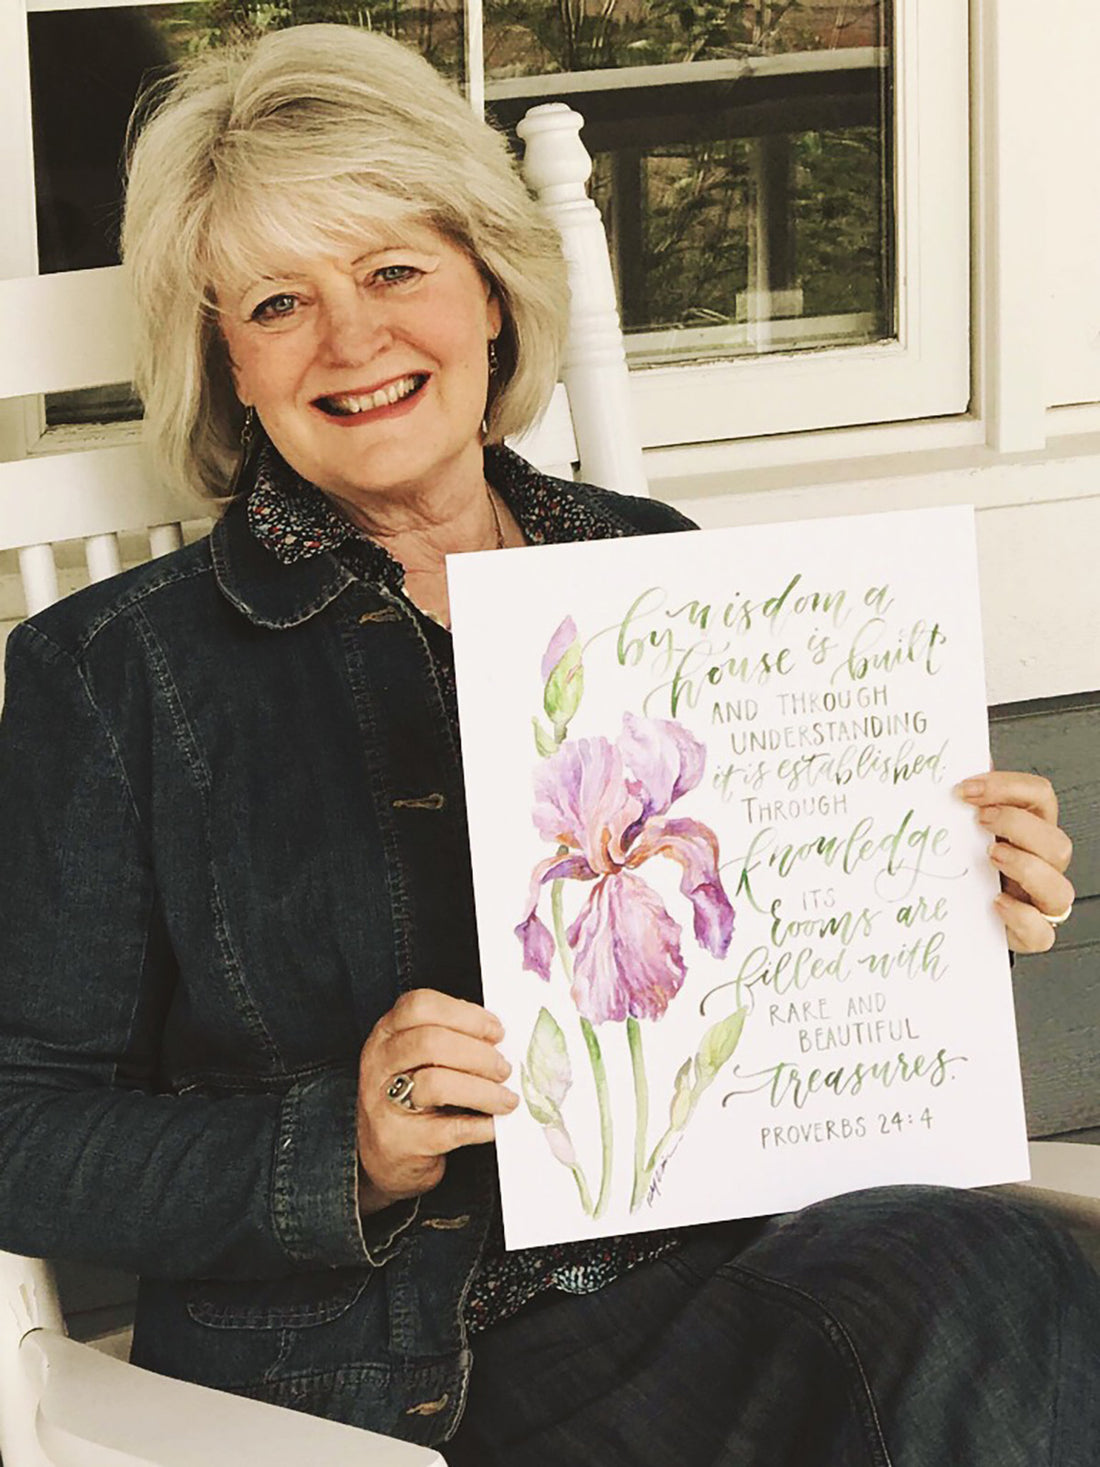 by wisdom a
house is built
AND THROUGH
UNDERSTANDING
it is established;
THROUGH
knowledge
ITS
Rooms are
filled with
RARE AND
BEAUTIFUL
treasures.
PROVERBS 24:4